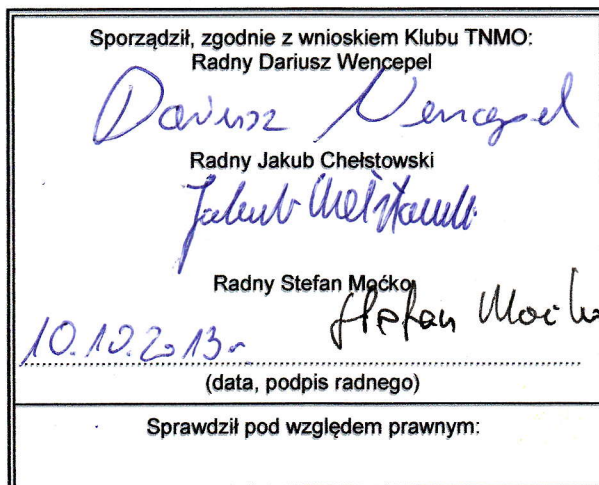 Sporządził, zgodnie z wnioskiem Klubu TNMO:
Radny Dariusz Wencepel
Dariusz Wencepel
Radny Jakub Chełstowski
Jakub Chełstowski
Radny Stefan Moćko
Stefan Moćko
10.10.2013r.
(data, podpis radnego)
Sprawdził pod względem prawnym: